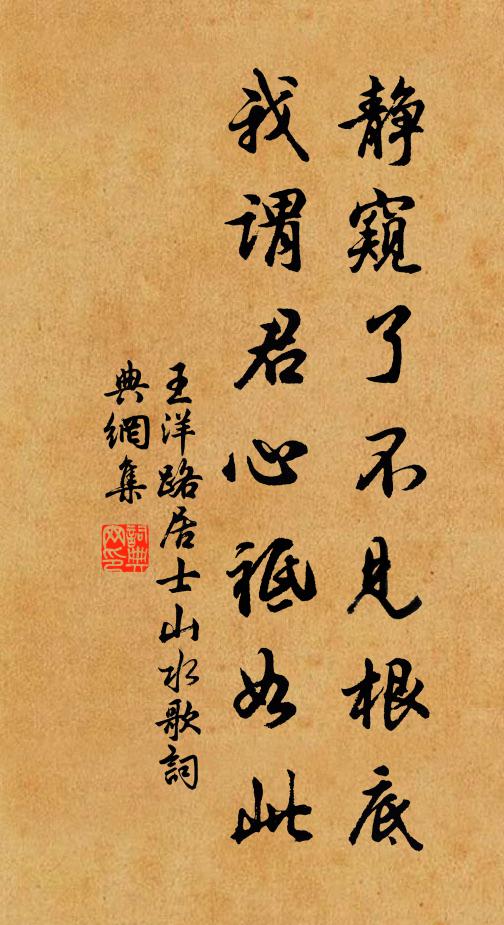 静窺了不見根底
我謂君心祗如此
王洋路居士山水歌詞
典網集
詞典网印